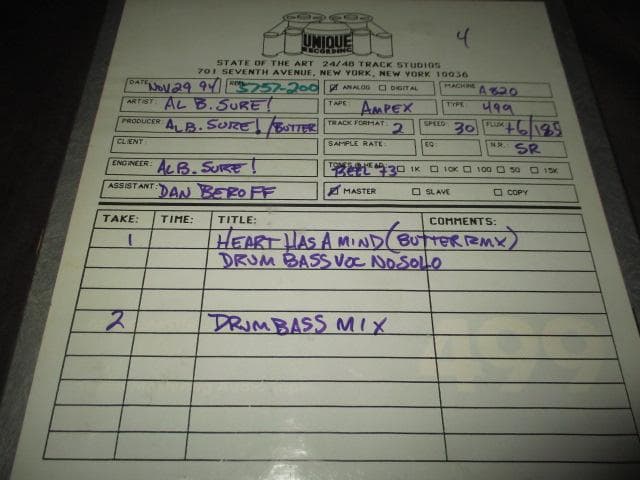 4
UNIQUE
RECORDING
STATE OF THE ART 24/48 TRACK STUDIOS
701 SEVENTH AVENUE, NEW YORK, NEW YORK 10036
DATE: NOV 29 94 REEL: 5757-200 ANALOG DIGITAL MACHINE: A820
ARTIST: AL B. SURE! TAPE: AMPEX TYPE: 499
PRODUCER: AL B. SURE! / BUTTER TRACK FORMAT: 2 SPEED: 30 FLUX: +6/185
CLIENT: SAMPLE RATE: EQ: N.R.: SR
ENGINEER: AL B. SURE! TONES @ HEAD: REEL 73 1K 10K 100 50 15K
ASSISTANT: DAN BEROFF MASTER SLAVE COPY
TAKE: TIME: TITLE: COMMENTS:
1 HEART HAS A MIND (BUTTER RMX)
DRUM BASS VOC NO SOLO
2 DRUM BASS MIX
499